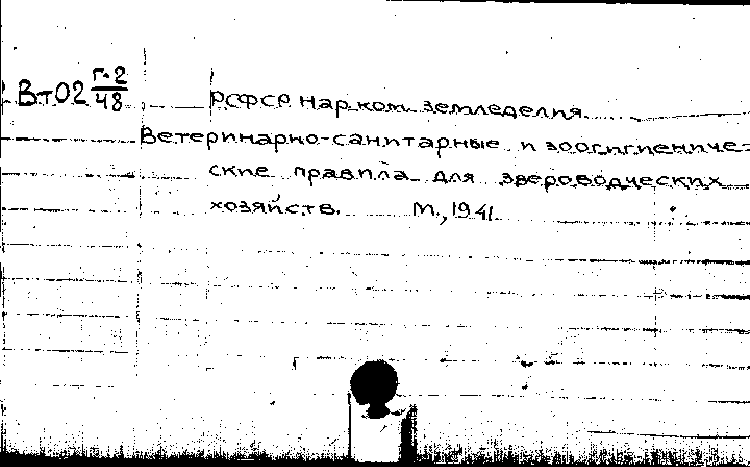 Вт02 Г-2/48
РСФСР Нар.ком. земледелия.
Ветеринарно-санитарные и зоогигиениче-
ские правила для звероводческих
хозяйств. М., 1941